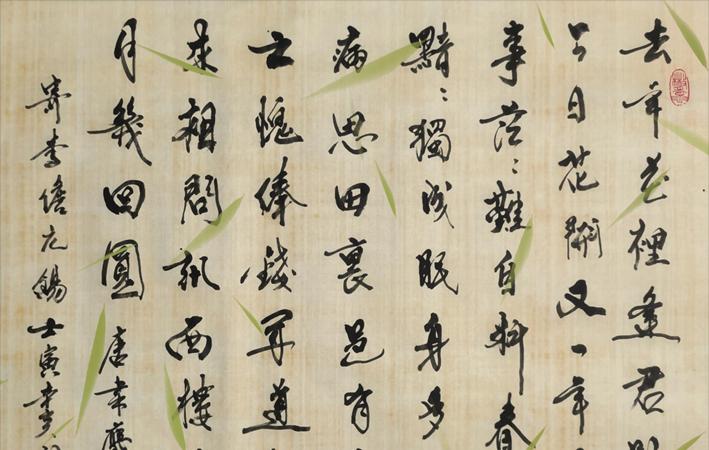 去年花裡逢君
今日花開又一年
事茫〻難自料春
黯〻獨成眠身多
病思田裏邑有
亡愧俸錢聞道
來相問訊西樓
月幾回圓 唐韋應
寄李儋元錫 壬寅